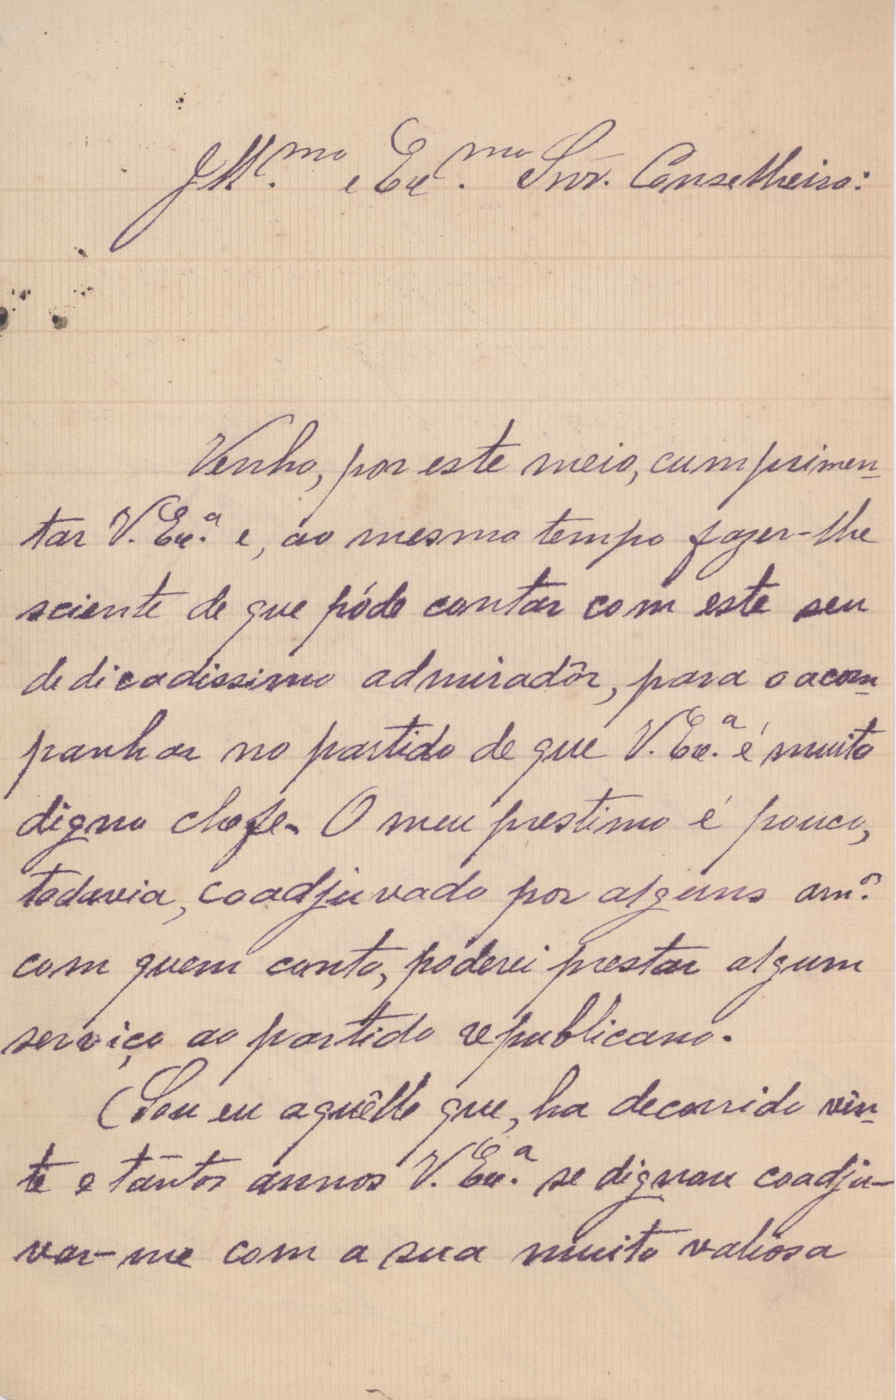 Ill.mo e Exc.mo Snr. Conselheiro:
Venho, por este meio, cumprimen-
tar V. Exc.ª e, ao mesmo tempo fazer-lhe
sciente de que póde contar com este seu
dedicadissimo admiradôr, para o acom-
panhar no partido de que V. Exc.ª é muito
digno chefe. O meu prestimo é pouco,
todavia, coadjuvado por alguns am.os
com quem conto, poderei prestar algum
serviço ao partido republicano.
(Sou eu aquêlle que, ha decorrido vin-
te e tantos annos V. Exc.ª se dignou coadju-
var-me com a sua muito valiosa